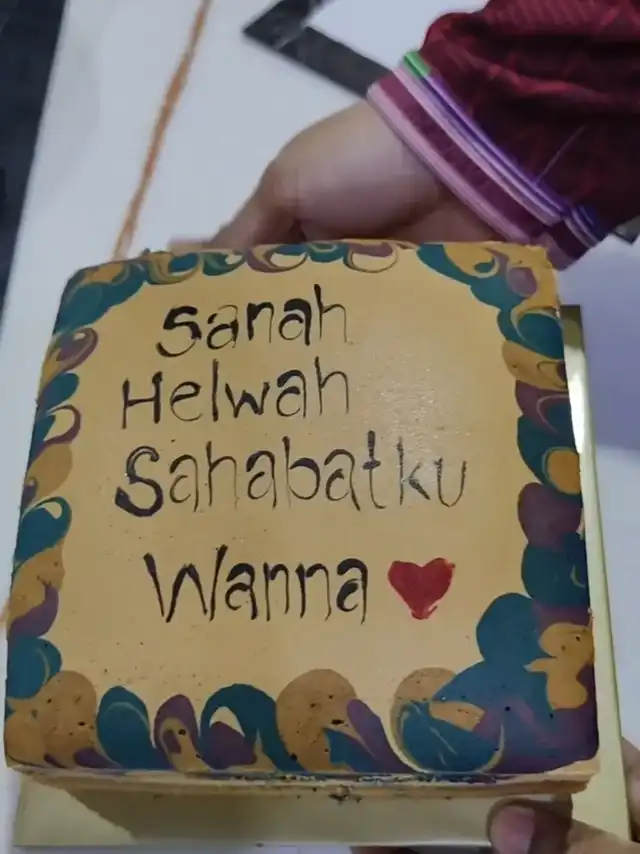 Sanah
Helwah
Sahabatku
Wanna